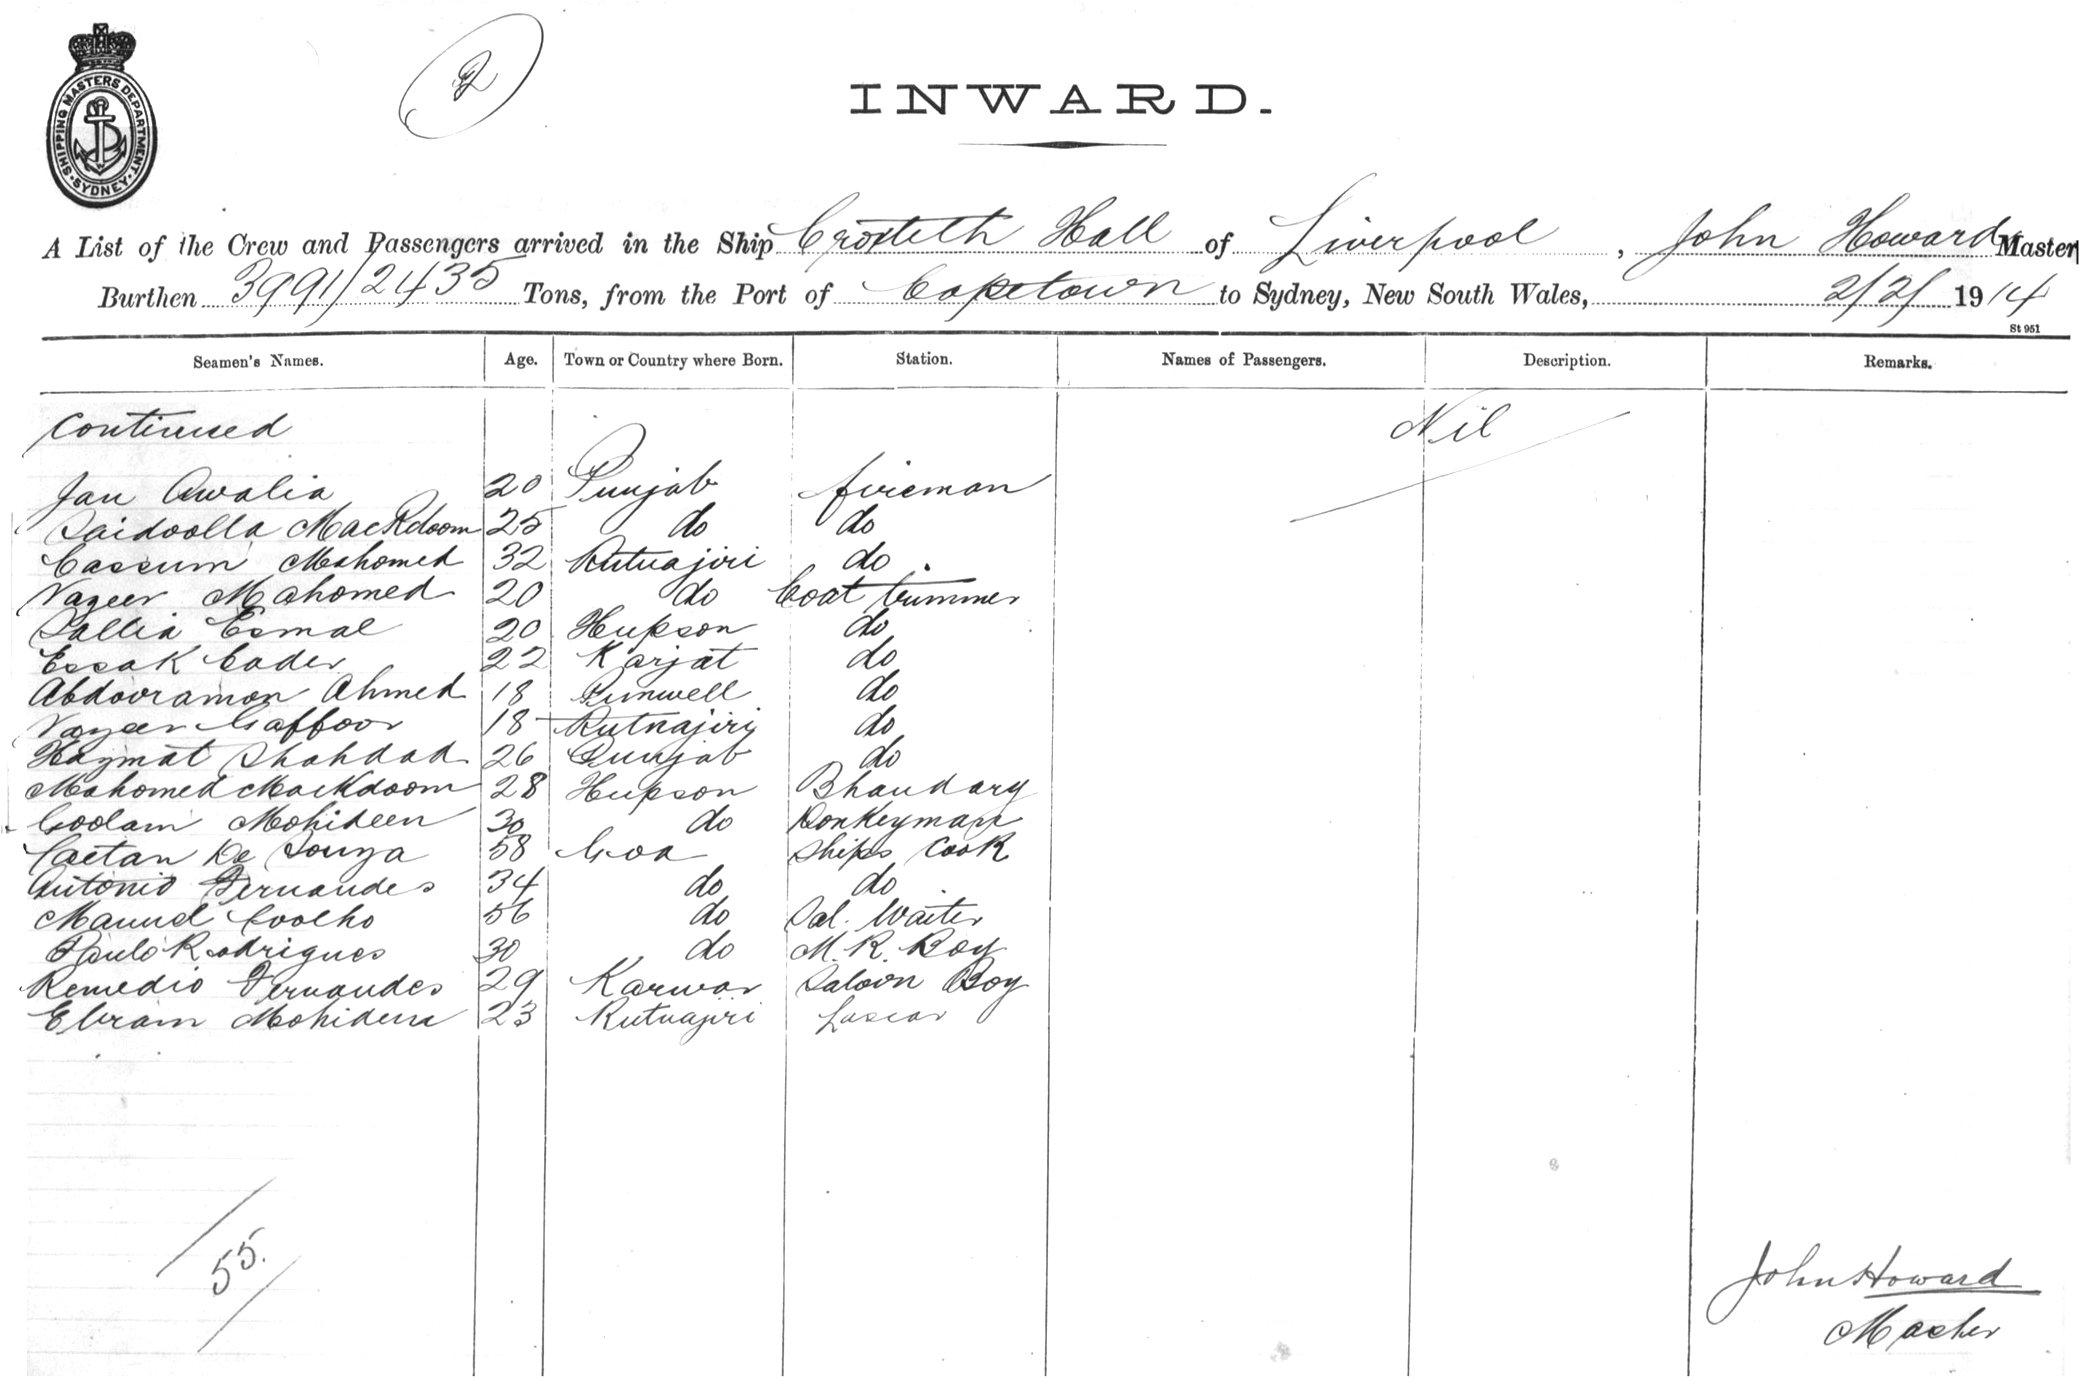 2
SHIPPING MASTERS DEPARTMENT. SYDNEY.
INWARD.
A List of the Crew and Passengers arrived in the Ship Croxteth Hall of Liverpool, John Howard Master
Burthen 3991/2435 Tons, from the Port of Capetown to Sydney, New South Wales, 2/2/1914
St 951
Seamen's Names. Age. Town or Country where Born. Station. Names of Passengers. Description. Remarks.
Continued Nil
Jan Awalia 20 Punjab fireman
Saidoolla Mackdoom 25 do do
Cassum Mahomed 32 Rutnajiri do
Vazeer Mahomed 20 do Coal trimmer
Sallia Esmal 20 Hupson do
Essak Cader 22 Karjat do
Abdooramon Ahmed 18 Punwell do
Vazeer Gaffoor 18 Rutnajiri do
Hazmat Shahdad 26 Punjab do
Mahomed Mackdoom 28 Hupson Bhandary
Goolam Mohideen 30 do Donkeyman
Caetan De Souza 58 Goa Ships Cook
Antonio Fernandes 34 do do
Manuel Coelho 56 do Sal. Waiter
Paulo Rodrigues 30 do M. R. Boy
Remedio Fernandes 29 Karwar Saloon Boy
Ebram Mohideen 23 Rutnajiri Lascar
55.
John Howard
Master